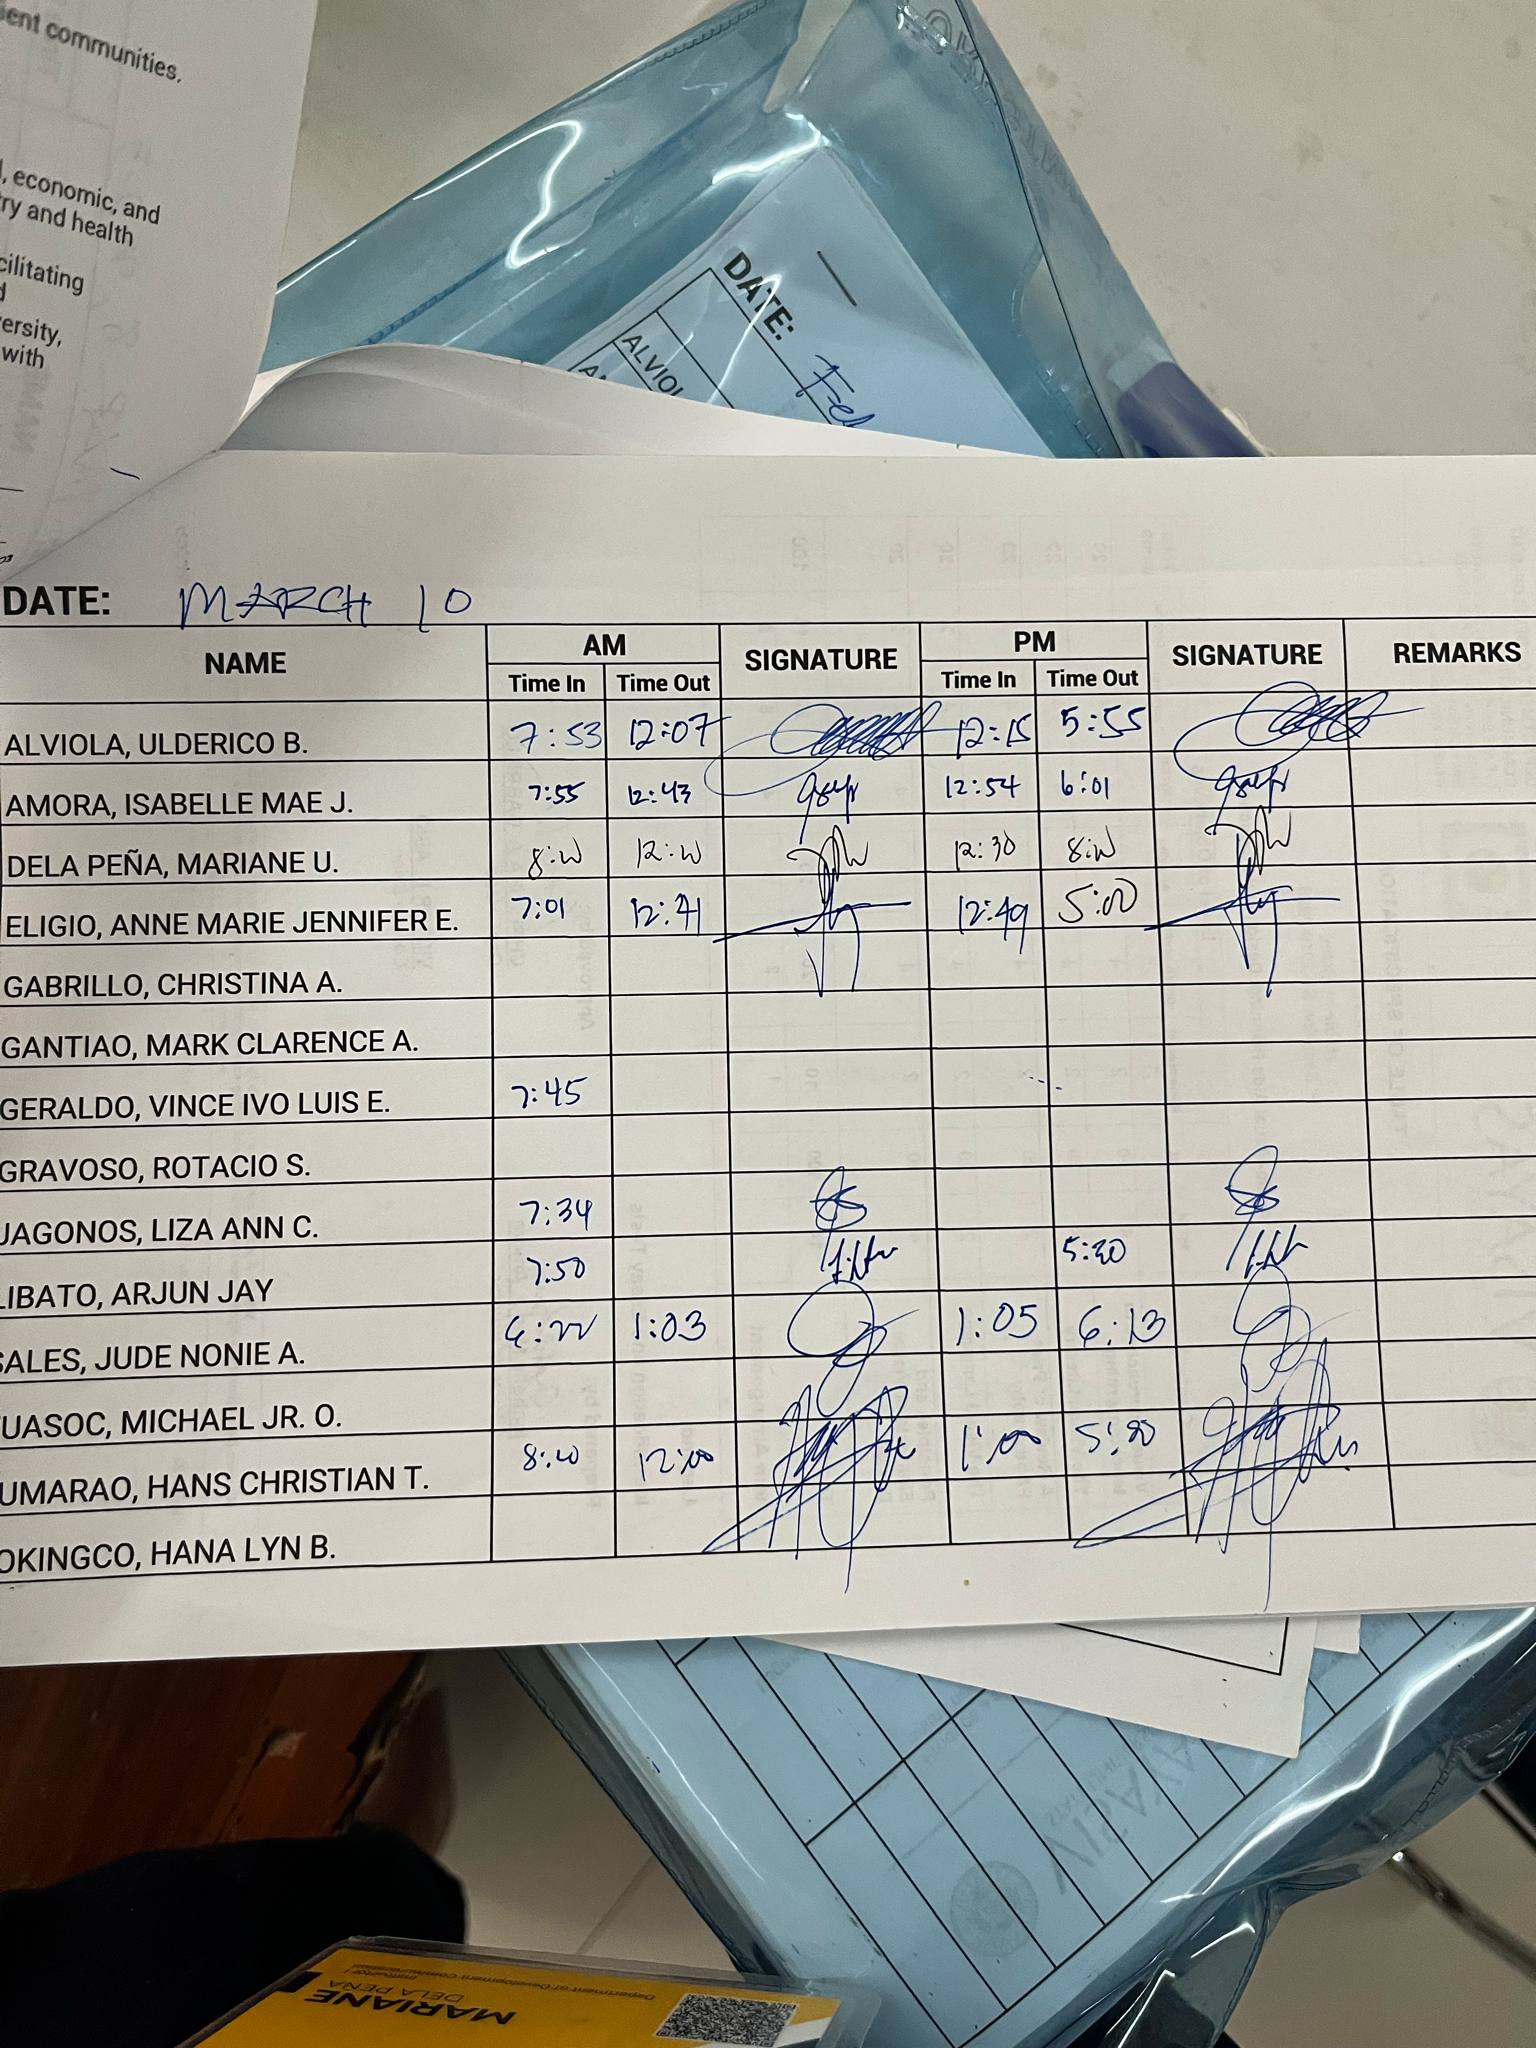 ent communities.
, economic, and
ry and health
cilitating
ersity,
with
DATE: Feb
ALVIOL
DATE: MARCH 10
NAME AM SIGNATURE PM SIGNATURE REMARKS
Time In Time Out Time In Time Out
ALVIOLA, ULDERICO B. 7:53 12:07 12:15 5:55
AMORA, ISABELLE MAE J. 7:55 12:43 12:54 6:01
DELA PEÑA, MARIANE U. 12:30
ELIGIO, ANNE MARIE JENNIFER E. 7:01 12:41 12:49 5:00
GABRILLO, CHRISTINA A.
GANTIAO, MARK CLARENCE A.
GERALDO, VINCE IVO LUIS E. 7:45
GRAVOSO, ROTACIO S.
JAGONOS, LIZA ANN C. 7:34
LIBATO, ARJUN JAY 7:50
SALES, JUDE NONIE A. 1:03 1:05 6:13
UASOC, MICHAEL JR. O.
UMARAO, HANS CHRISTIAN T. 12:00 1:00
OKINGCO, HANA LYN B.
VISAYA
MARIANE
DELA PEÑA
Instructor I
Department of Development Communication